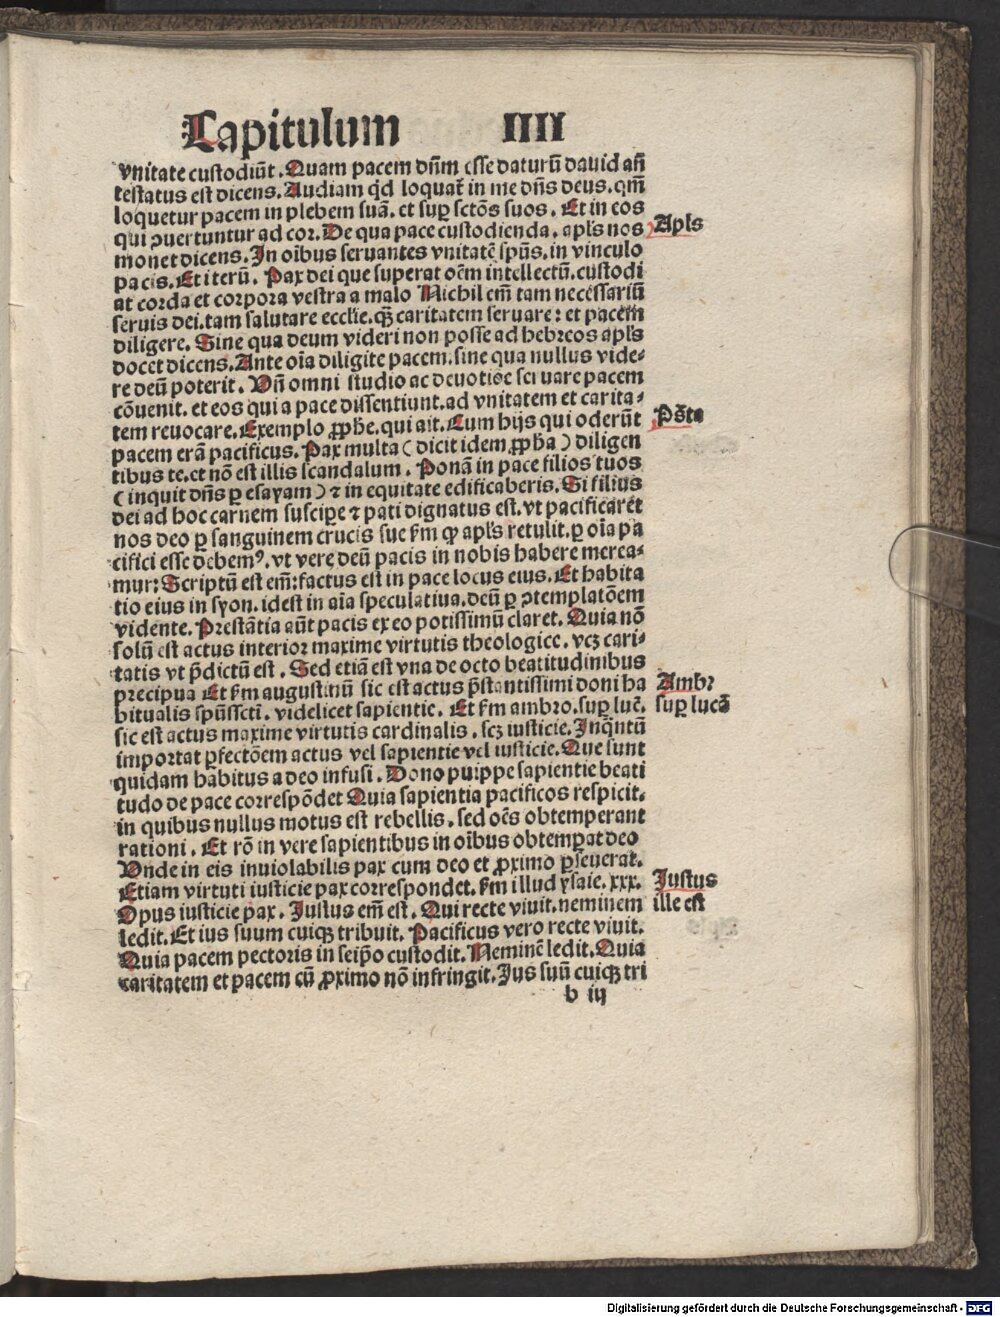 Capitulum IIII
vnitate custodiūt. Quam pacem dn̄m esse daturū dauid an̄
testatus est dicens. Audiam qd loquat̄ in me dn̄s deus. qm̄
loquetur pacem in plebem suā. et suꝑ sctōs suos. Et in eos
qui ꝯuertuntur ad cor. De qua pace custodienda. apl̄s nos
monet dicens. In oībus seruantes vnitatē spūs. in vinculo
pacis. Et iterū. Pax dei que superat oēm intellectū. custodi
at corda et corpora vestra a malo Nichil em̄ tam necessariū
seruis dei. tam salutare eccl̄ie. qꝫ caritatem seruare: et pacem
diligere. Sine qua deum videri non posse ad hebreos apl̄s
docet dicens. Ante oīa diligite pacem. sine qua nullus vide⸗
re deū poterit. Vn̄ omni studio ac deuotiōe seruare pacem
cōuenit. et eos qui a pace dissentiunt. ad vnitatem et carita⸗
tem reuocare. Exemplo ꝓphe. qui ait. Cum hijs qui oderūt
pacem erā pacificus. Pax multa (dicit idem ꝓpha) diligen
tibus te. et nō est illis scandalum. Ponā in pace filios tuos
(inquit dn̄s ꝑ esayam) ⁊ in equitate edificaberis. Si filius
dei ad hoc carnem suscipe ⁊ pati dignatus est. vt pacificaret
nos deo ꝑ sanguinem crucis sue ẜm ꝙ apl̄s retulit. ꝑ oīa pa
cifici esse debemꝰ. vt vere deū pacis in nobis habere merea⸗
mur: Scriptū est em̄: factus est in pace locus eius. Et habita
tio eius in syon. idest in aīa speculatiua. deū ꝑ ꝯtemplatōem
vidente. Prestātia aūt pacis ex eo potissimū claret. Quia nō
solū est actus interior maxime virtutis theologice. vcꝫ cari⸗
tatis vt p̄dictū est. Sed etiā est vna de octo beatitudinibus
precipua Et ẜm augustinū sic est actus p̄stantissimi doni ha
bitualis spūssctī. videlicet sapientie. Et ẜm ambro. suꝑ luc̄.
sic est actus maxime virtutis cardinalis. scꝫ iusticie. Inq̄ntū
importat ꝑfectōem actus vel sapientie vel iusticie. Que sunt
quidam habitus a deo infusi. Dono puippe sapientie beati
tudo de pace correspōdet Quia sapientia pacificos respicit.
in quibus nullus motus est rebellis. sed oēs obtemperant
rationi. Et rō in vere sapientibus in oībus obtemꝑat deo
Vnde in eis inuiolabilis pax cum deo et ꝓximo ꝑseuerat.
Etiam virtuti iusticie pax correspondet. ẜm illud ysaie. xxx.
Opus iusticie pax. Justus em̄ est. Qui recte viuit. neminem
ledit. Et ius suum cuiqꝫ tribuit. Pacificus vero recte viuit.
Quia pacem pectoris in seip̄o custodit. Neminē ledit. Quia
caritatem et pacem cū ꝓximo nō infringit. Jus suū cuiqꝫ tri
b iij
Apl̄s
Ps̄ta
Ambꝛ
suꝑ lucā
Justus
ille est
Digitalisierung gefördert durch die Deutsche Forschungsgemeinschaft - DFG